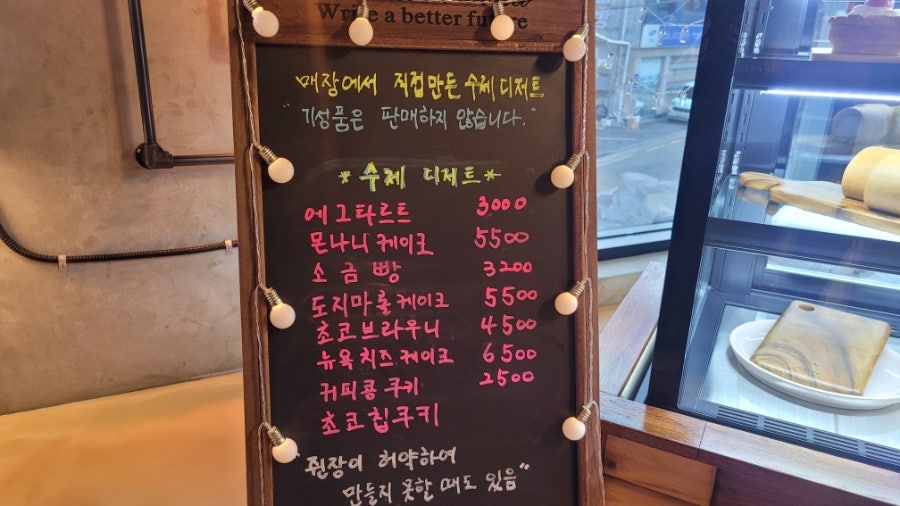 Write a better future
매장에서 직접만든 수제디저트
"기성품은 판매하지 않습니다."
*수제 디저트*
에그타르트 3000
몬나니 케이크 5500
소금빵 3200
도지마롤케이크 5500
초코브라우니 4500
뉴욕치즈케이크 6500
커피콩쿠키 2500
초코칩쿠키
"쥔장이 허약하여
만들지 못할 때도 있음"